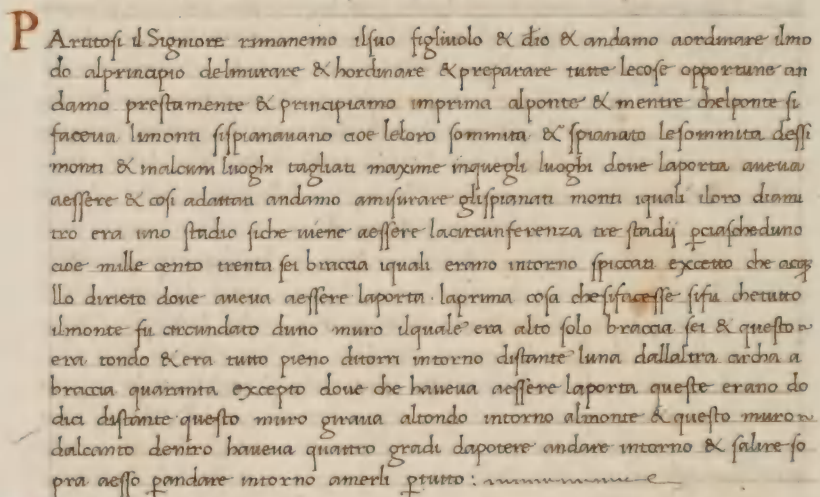 PArtitosi il Signiore rimanemo ilsuo figliuolo & dio & andamo aordinare ilmo
do alprincipio delmurare & hordinare & preparare tutte lecose opportune an
damo prestamente & principiamo imprima alponte & mentre chelponte si
faceua limonti sispianauano cioe leloro sommita & spianato lesommita dessi
monti & inalcuni luoghi tagliati maxime inquegli luoghi doue laporta aueua
aessere & cosi adattati andamo amisurare glispianati monti iquali iloro diami
tro era uno stadio siche uiene aessere lacircunferenza tre stadij ꝑciascheduno
cioe mille cento trenta sei braccia iquali erano intorno spiccati excetto che acq̄
llo dirieto doue aueua aessere laporta · laprima cosa chesifacesse sifu chetutto
ilmonte fu circundato duno muro ilquale era alto solo braccia sei & questo
era tondo & era tutto pieno ditorri intorno distante luna dallaltra circha a
braccia quaranta excepto doue che haueua aessere laporta queste erano do
dici distante questo muro giraua altondo intorno almonte & questo muro
dalcanto dentro haueua quattro gradi dapotere andare intorno & salire so
pra aesso ꝑandare intorno amerli ꝑtutto :